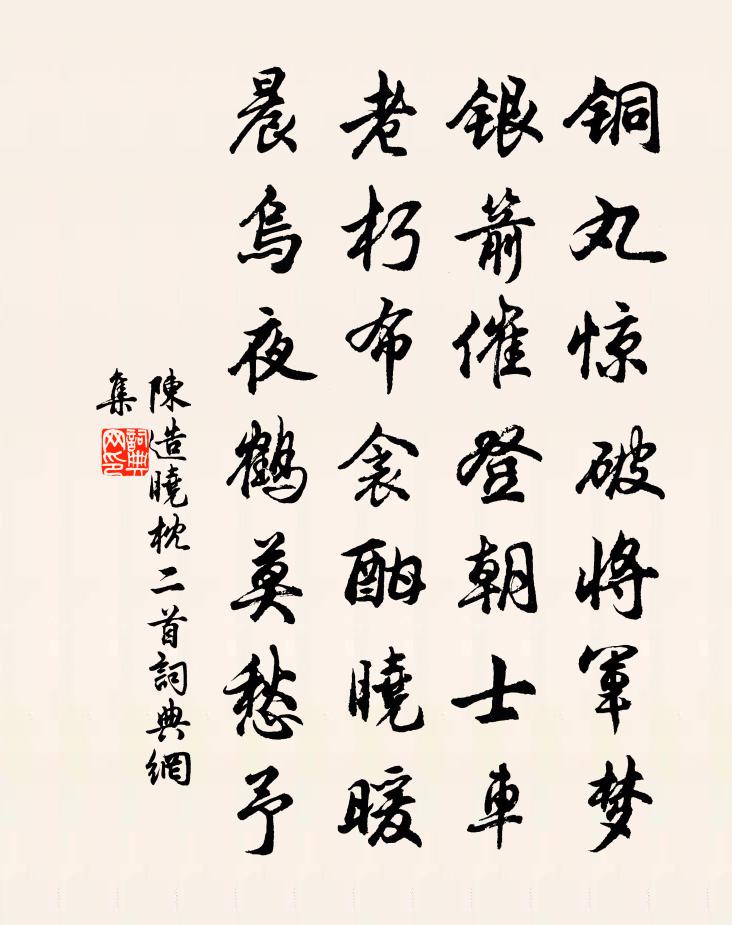 铜丸惊破将军梦
银箭催登朝士车
老朽布衾酣晓暖
晨乌夜鹤莫愁予
陳造曉枕二首詞典網
集
詞典
网印